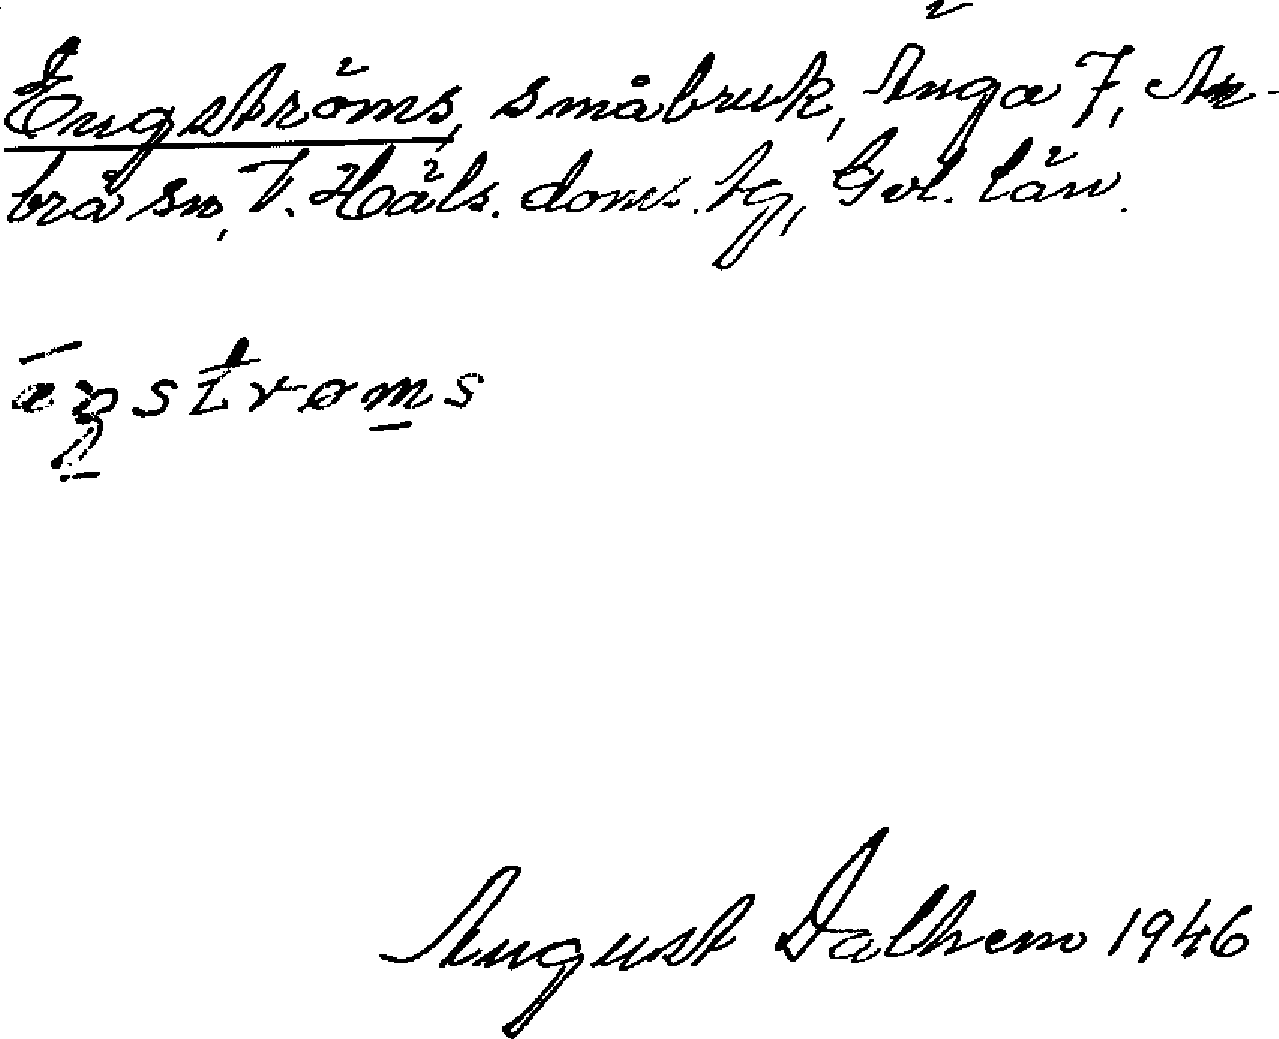 Engströms, småbruk, Änga 7, Ar-
brå sn, V. Häls. doms. tg, Gvl. län.
æŋstrøms
August Dalhem 1946